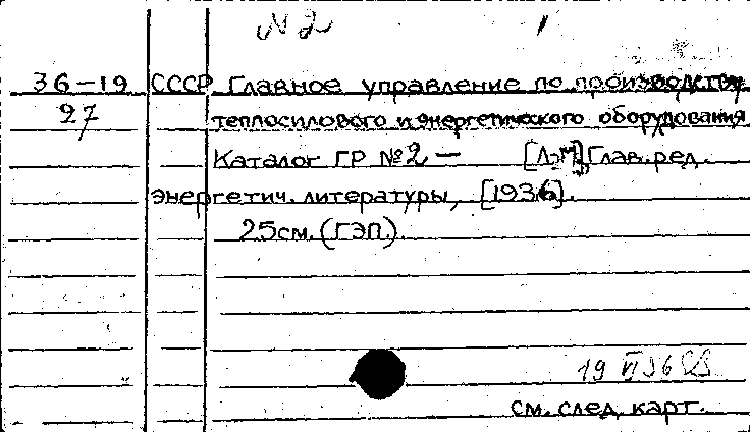 № 2
36-19 СССР Главное управление по производству
27 теплосилового и энергетического оборудования
Каталог ГР №2 — [Л-М], Глав. ред.
энергетич. литературы, [1936].
25см. (ГЭП).
19 VI 36
см. след. карт.